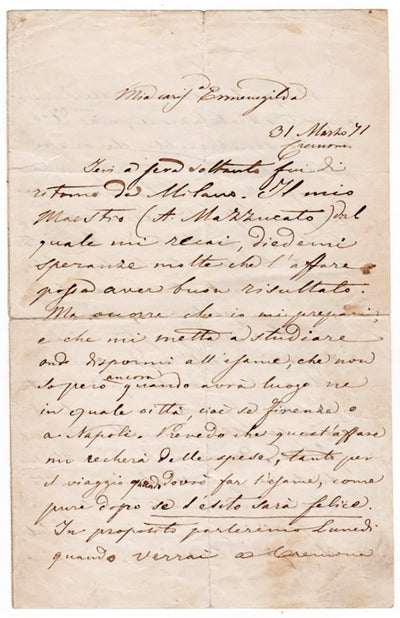 Mia caris.a Ermenegilda
31 Marzo 71
Cremona
Ieri a sera soltanto fui di
ritorno da Milano. Il mio
Maestro (A. Mazzucato) dal
quale mi recai, diedemi
speranze molte che l'affare
possa aver buon risultato.
Ma occorre che io mi prepari,
e che mi metta a studiare
onde dispormi all'esame, che non
so però ancora quando avrà luogo ne
in quale città, cioè se Firenze o
a Napoli. Prevedo che quest'affare
mi recherà delle spese, tanto per
il viaggio quando dovrò far l'esame, come
pure dopo se l'esito sarà felice.
In proposito parleremo Lunedì
quando verrai a Cremona